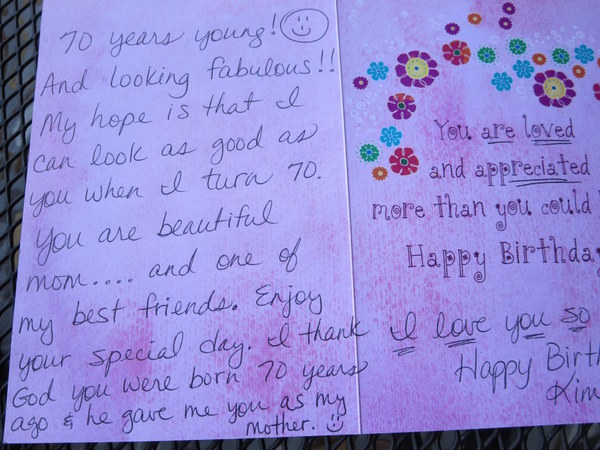 70 years young!
And looking fabulous!!
My hope is that I
can look as good as
you when I turn 70.
You are beautiful
mom.... and one of
my best friends. Enjoy
your special day. I thank
God you were born 70 years
ago & he gave me you as my
mother.
You are loved
and appreciated
more than you could
Happy Birthday
I love you so
Happy Birth
Kim